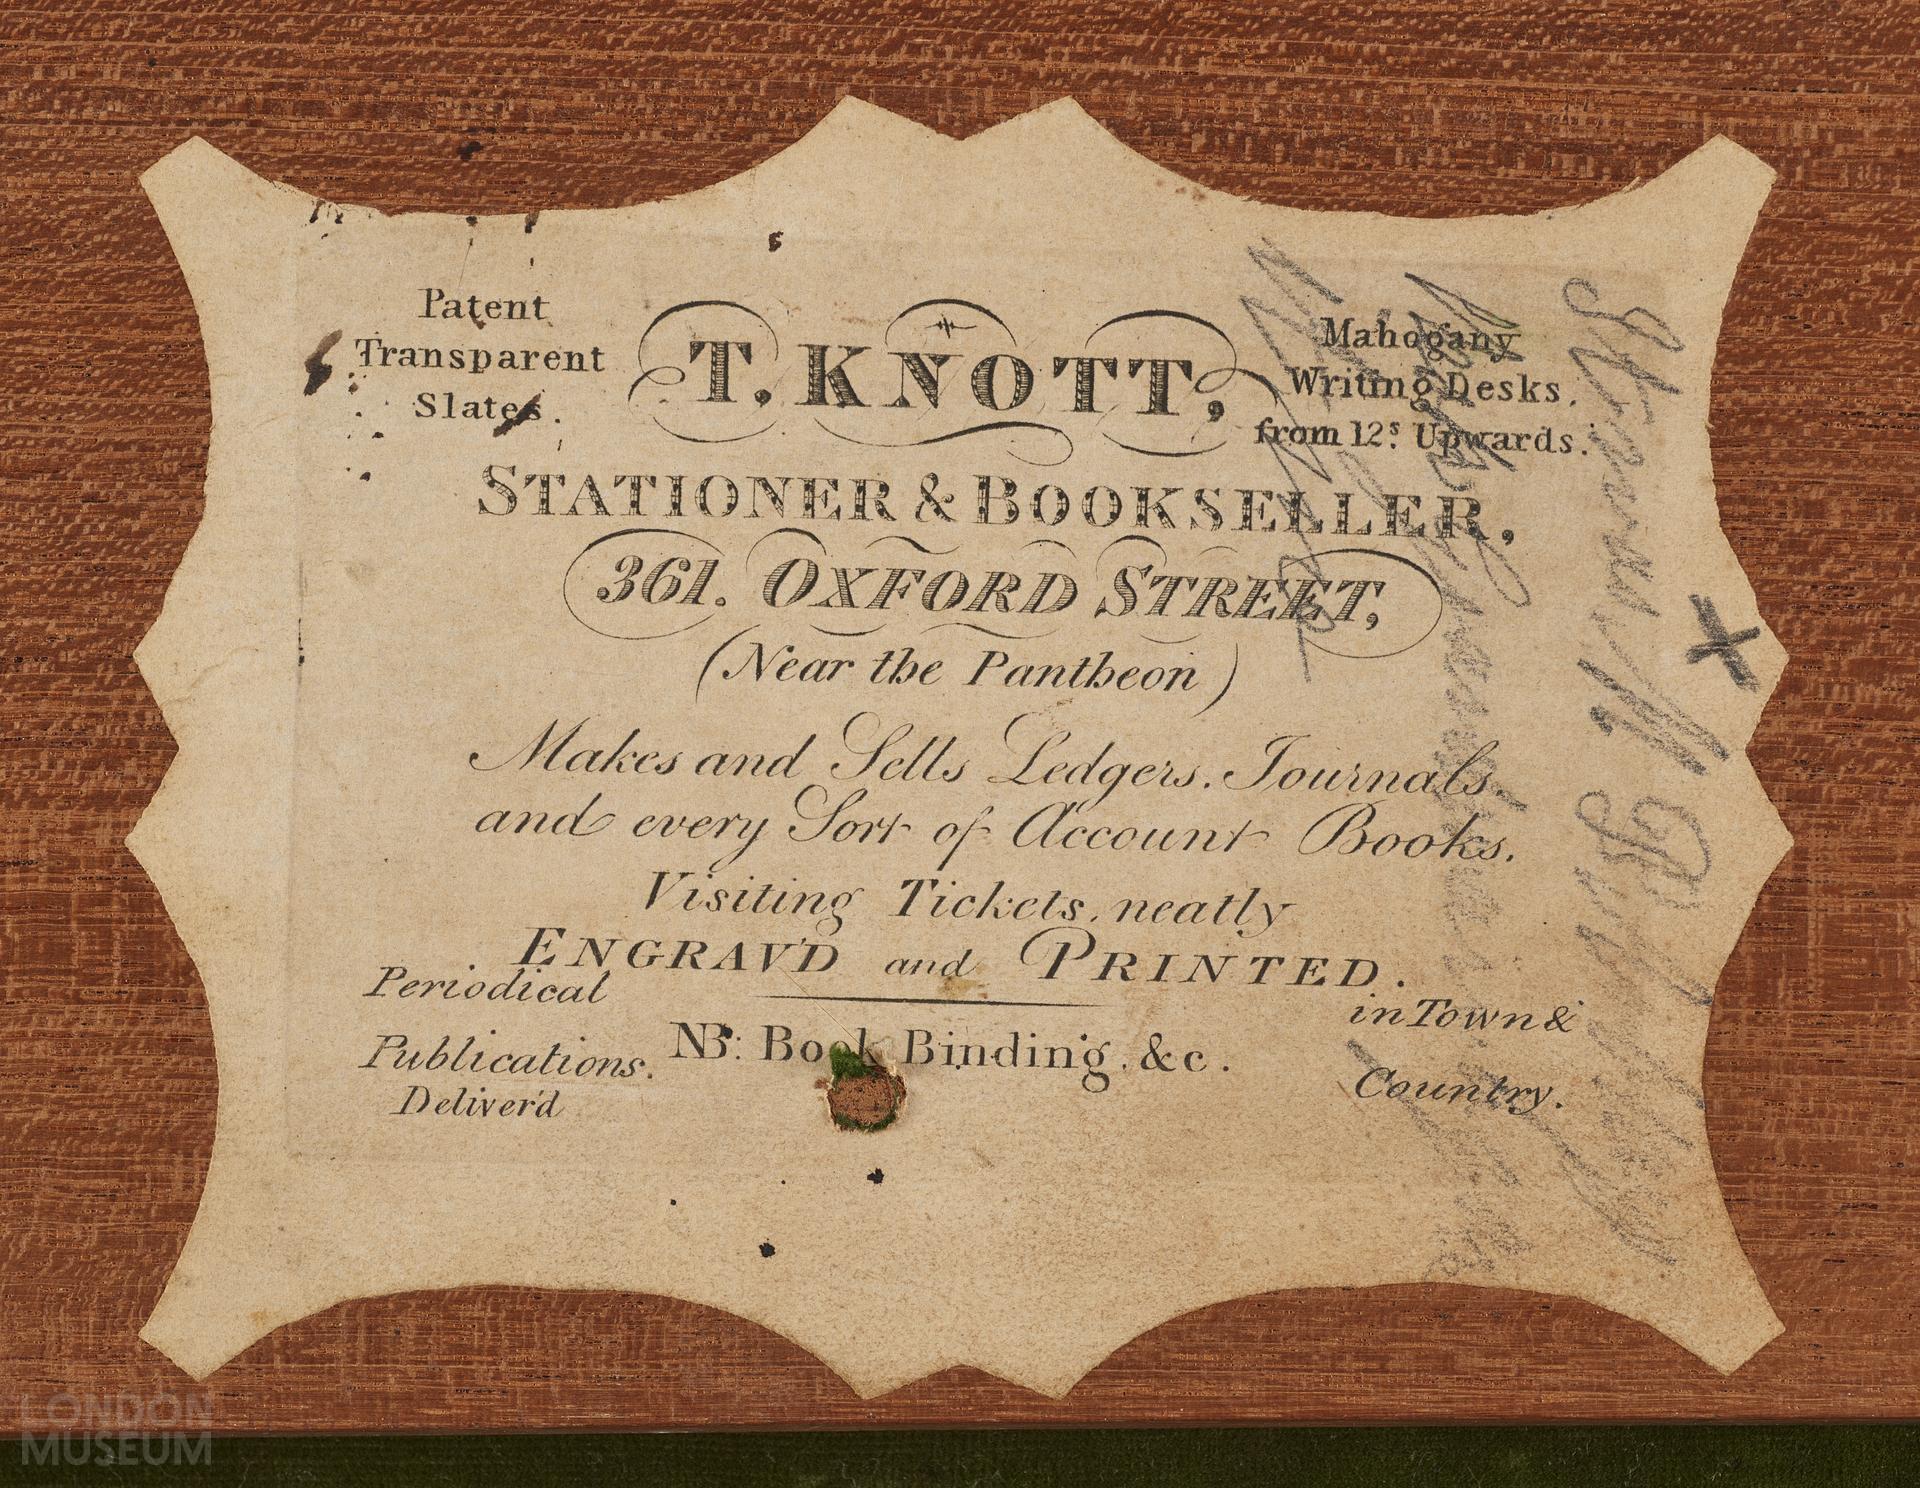 Patent
Transparent
Slates.
T. KNOTT,
Mahogany
Writing Desks.
from 12s. Upwards.
STATIONER & BOOKSELLER,
361. OXFORD STREET,
(Near the Pantheon)
Makes and Sells Ledgers. Journals.
and every Sort of Account Books.
Visiting Tickets, neatly
ENGRAV'D and PRINTED.
Periodical
Publications.
Deliver'd
in Town &
Country.
NB: Book Binding. &c.
LONDON
MUSEUM